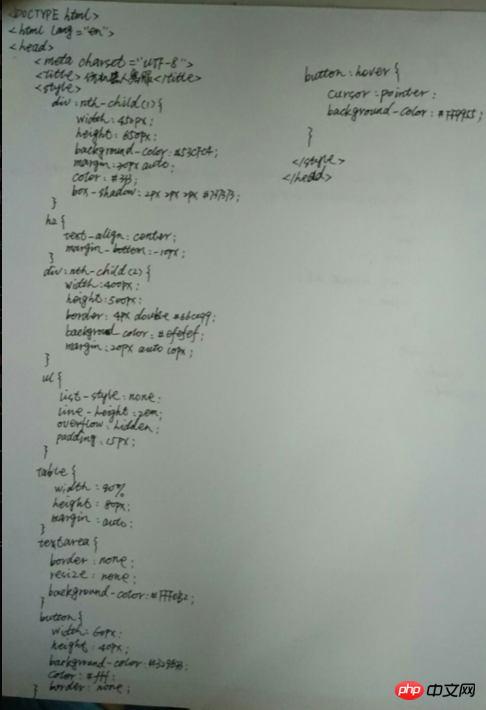 <!DOCTYPE html>
<html lang="en">
<head>
<meta charset="UTF-8">
<title> </title>
<style>
div:nth-child(1){
width:450px;
height:650px;
background-color:
margin:30px auto;
color:#333
box-shadow:2px 2px 2px
}
h2{
text-align:center;
margin-bottom:-10px;
}
div:nth-child(2){
width:400px;
height:500px;
border:4px double
background-color:#efefef;
margin:20px auto 10px;
}
ul{
list-style:none;
line-height:2em;
overflow:hidden;
padding:15px;
}
table{
width:90%
height:80px;
margin:auto;
}
textarea{
border:none;
resize:none;
background-color:
}
button{
width:60px;
height:40px;
background-color:
color:#fff;
border:none;
}
button:hover{
cursor:pointer;
background-color:
}
</style>
</head>
php 中文网